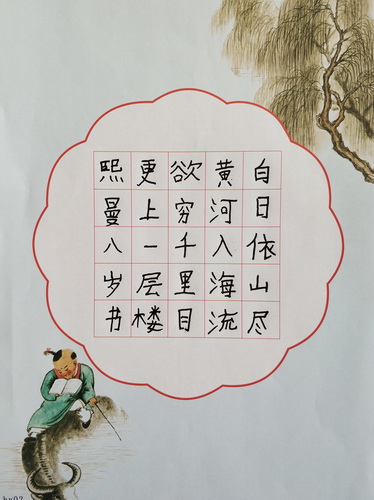 白日依山尽
黄河入海流
欲穷千里目
更上一层楼
熙曼八岁书
hx02